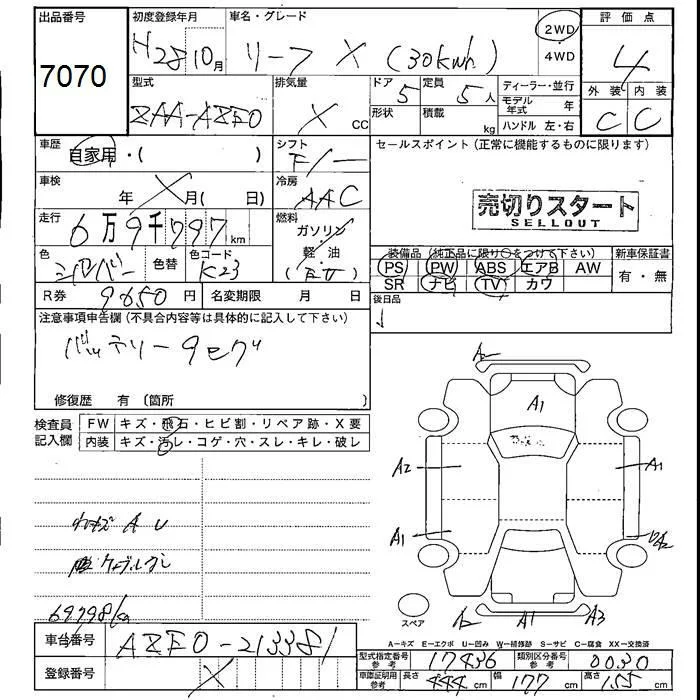 出品番号
7070
初度登録年月
H28 10月
車名・グレード
リーフ X (30kwh)
2WD
4WD
評価点
4
外装 内装
C C
型式
ZAA-AZE0
排気量
X CC
ドア 5
形状
定員 5人
積載 kg
ディーラー・並行
モデル年式 年
ハンドル 左・右
車歴
自家用・( )
シフト
F/一
セールスポイント (正常に機能するものに限ります)
車検
年 X 月( 日)
冷房
AAC
売切りスタート
SELLOUT
走行
6万9千797km
燃料
ガソリン
軽・油
色
シルバー
色替
色コード
K23
装備品 (純正品に限り○をつけて下さい)
新車保証書
PS PW ABS エアB AW
SR ナビ TV カワ
有・無
R券 9650円
名変期限 月 日
後日品
注意事項申告欄 (不具合内容等は具体的に記入して下さい)
バッテリー9セグ
修復歴 有 〔箇所 〕
検査員記入欄
FW キズ・飛石・ヒビ割・リペア跡・X要
内装 キズ・汚レ・コゲ・穴・スレ・キレ・破レ
A2
A1
A2
A1
A1
A U
69798km
スペア
A2 A1 A3
A－キズ E－エクボ U－凹み W－補修跡 S－サビ C－腐食 XX－交換済
車台番号
AZE0-213381
登録番号
X
型式指定番号 参考 17436
類別区分番号 参考 0030
車庫証明用 参考 長さ 444cm 幅 177cm 高さ 155cm